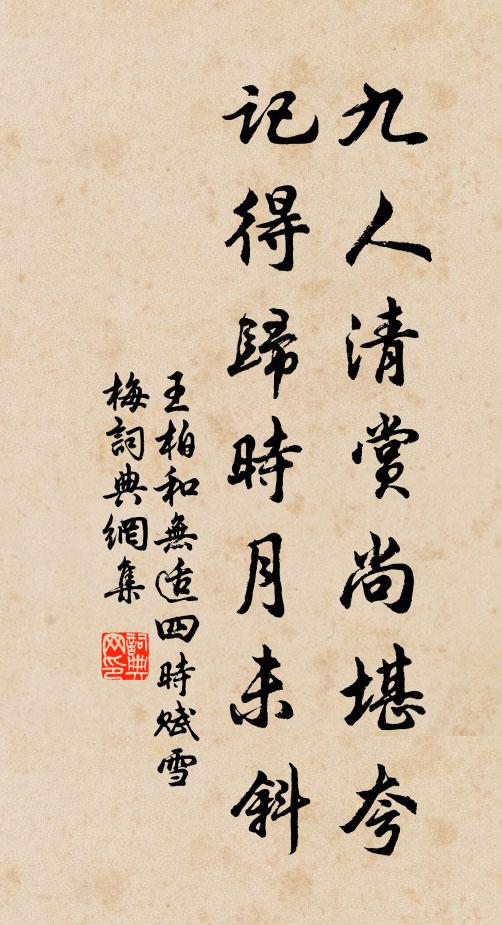 九人清賞尚堪夸
記得歸時月未斜
王柏和無適四時賦雪
梅詞典網集
詞典網印